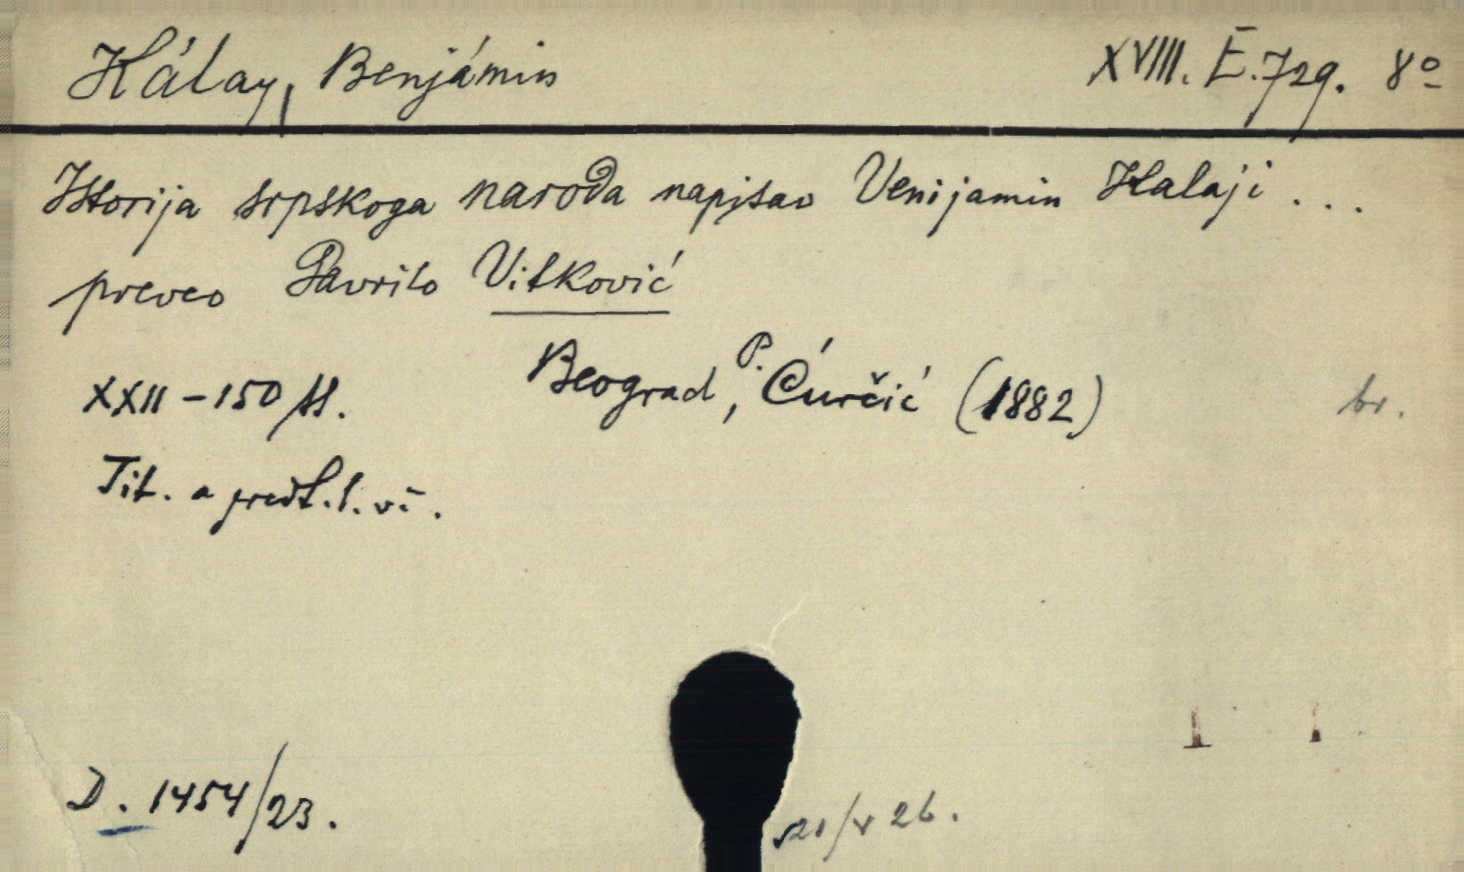 Kálay, Benjámin XVIII. E. 729. 8º
Istorija srpskoga naroda napisao Venijamin Kalaji ...
preveo Gavrilo Vitković
XXII - 150 ss. Beograd, P. Ćurčić (1882) br.
Tit. a předt.
D. 1454/23. 26.